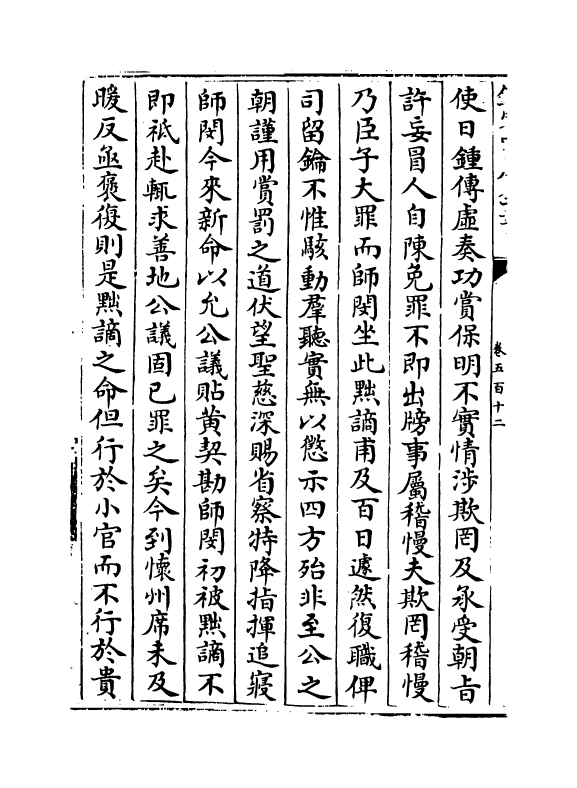 卷五百十二
使日鍾傳虛奏功賞保明不實情涉欺罔及承受朝旨
許妄冒人自陳免罪不即出牓事屬稽慢夫欺罔稽慢
乃臣子大罪而師閔坐此黜謫甫及百日遽然復職俾
司留鑰不惟駭動羣聽實無以懲示四方殆非至公之
朝謹用賞罰之道伏望聖慈深賜省察特降指揮追寢
師閔今來新命以允公議貼黃契勘師閔初被黜謫不
即祗赴輒求善地公議固已罪之矣今到懷州席未及
暖反亟褒復則是黜謫之命但行於小官而不行於貴